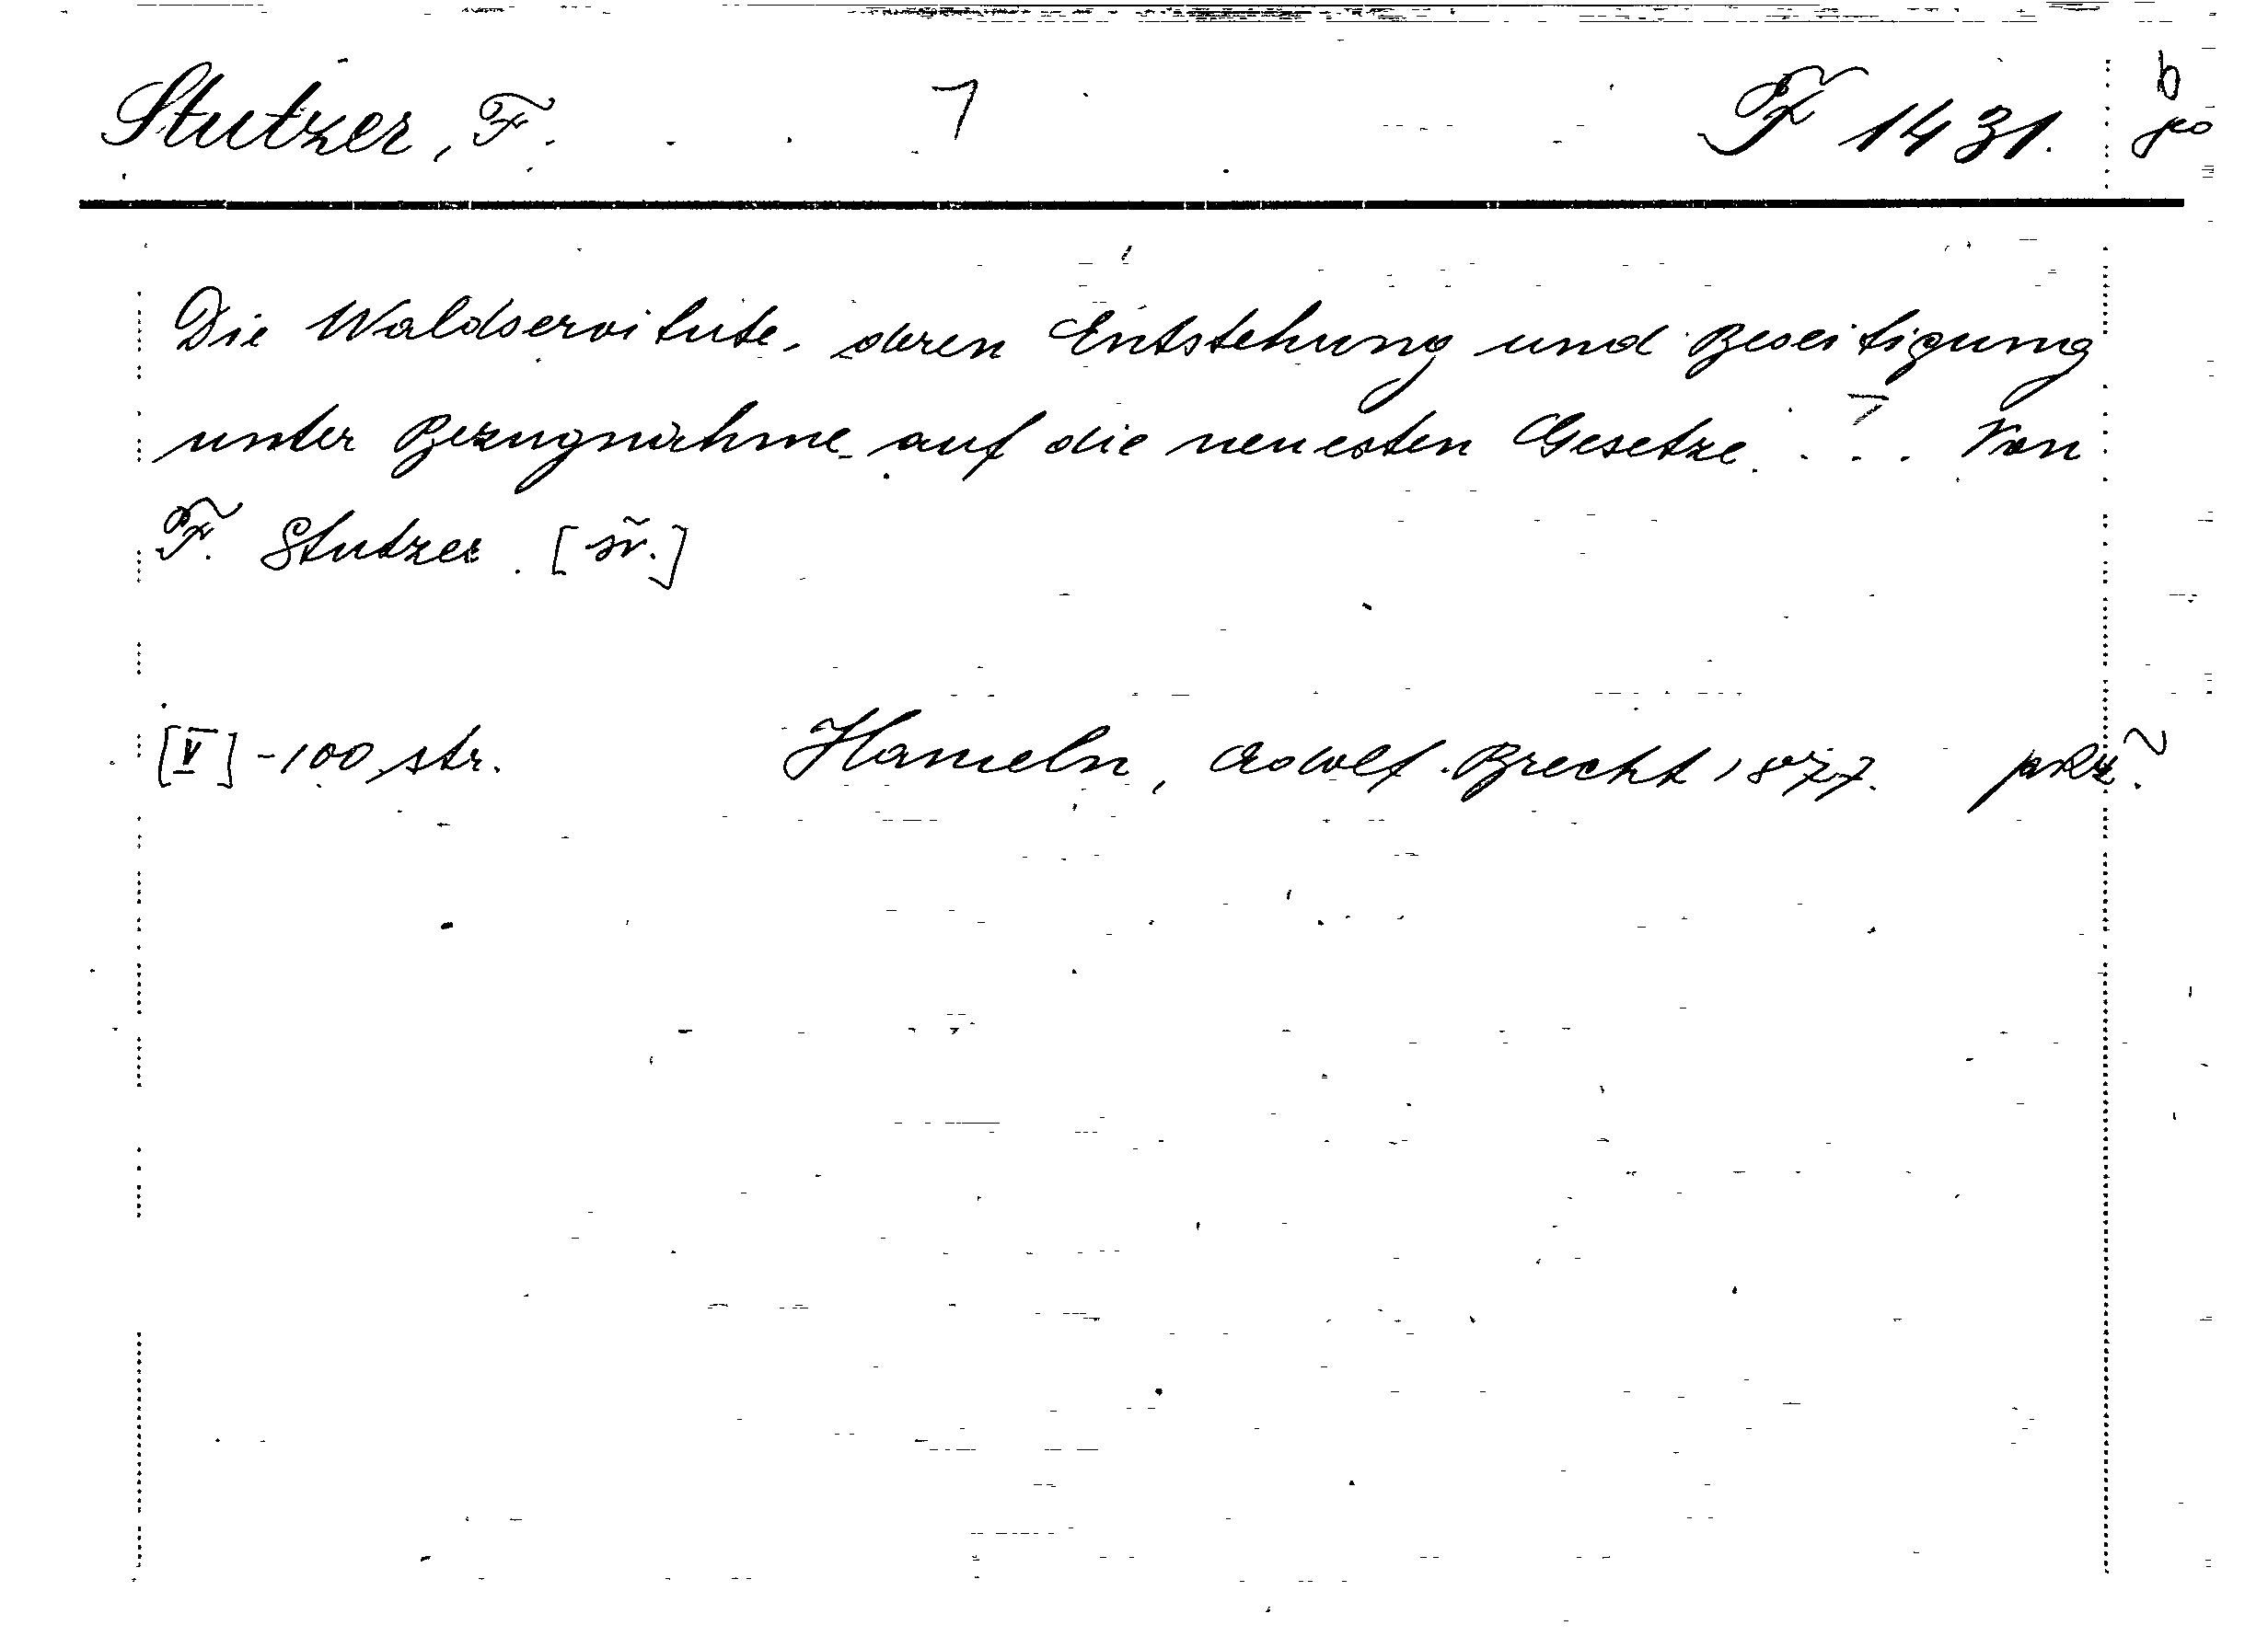 Stutzer, F. 7 F 1431. b
Die Waldservitute, deren Entstehung und Beseitigung
unter Bezugnahme auf die neuesten Gesetze. ... Von
F. Stutzer. [sr.]
[V]-100 str. Hameln, Adolf Brecht 1877.